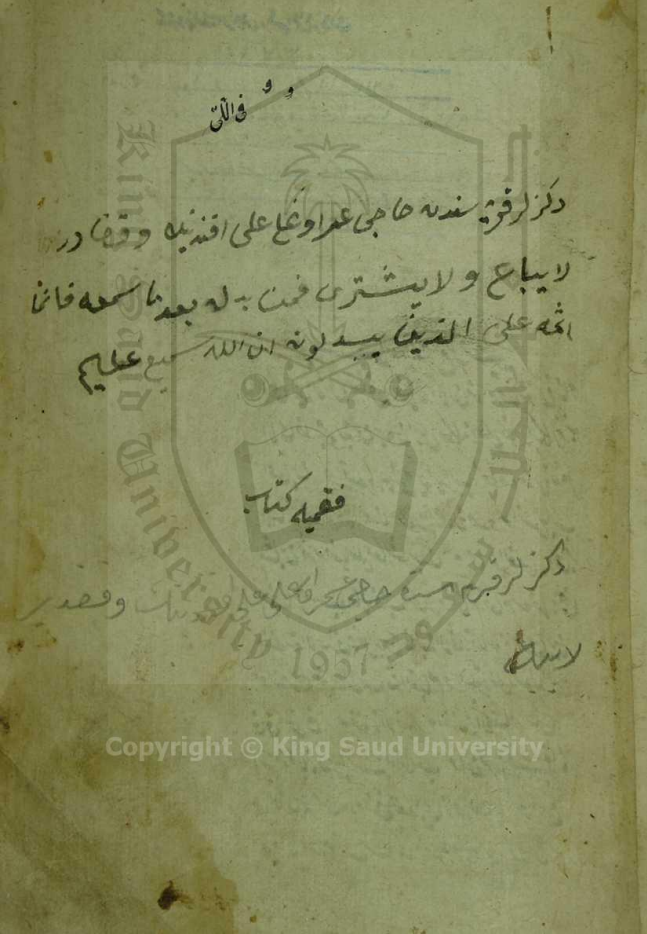 دكزلر قريه سندن حاجى عمر اوغلى على افندينك وقفادر
لايباع ولا يشترى فمن بدله بعد ما سمعه فانما
اثمه على الذين يبدلونه ان الله سميع عليم
فقهيه كتاب
دكزلر قريه سندن حاجى عمر اوغلى على افندينك وقفدر
King Saud University
1957
Copyright © King Saud University